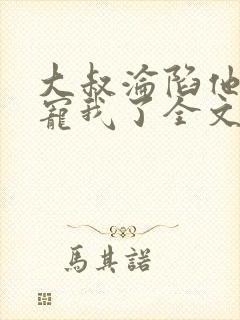 大叔淪陷他
寵我了全文
馬其諾